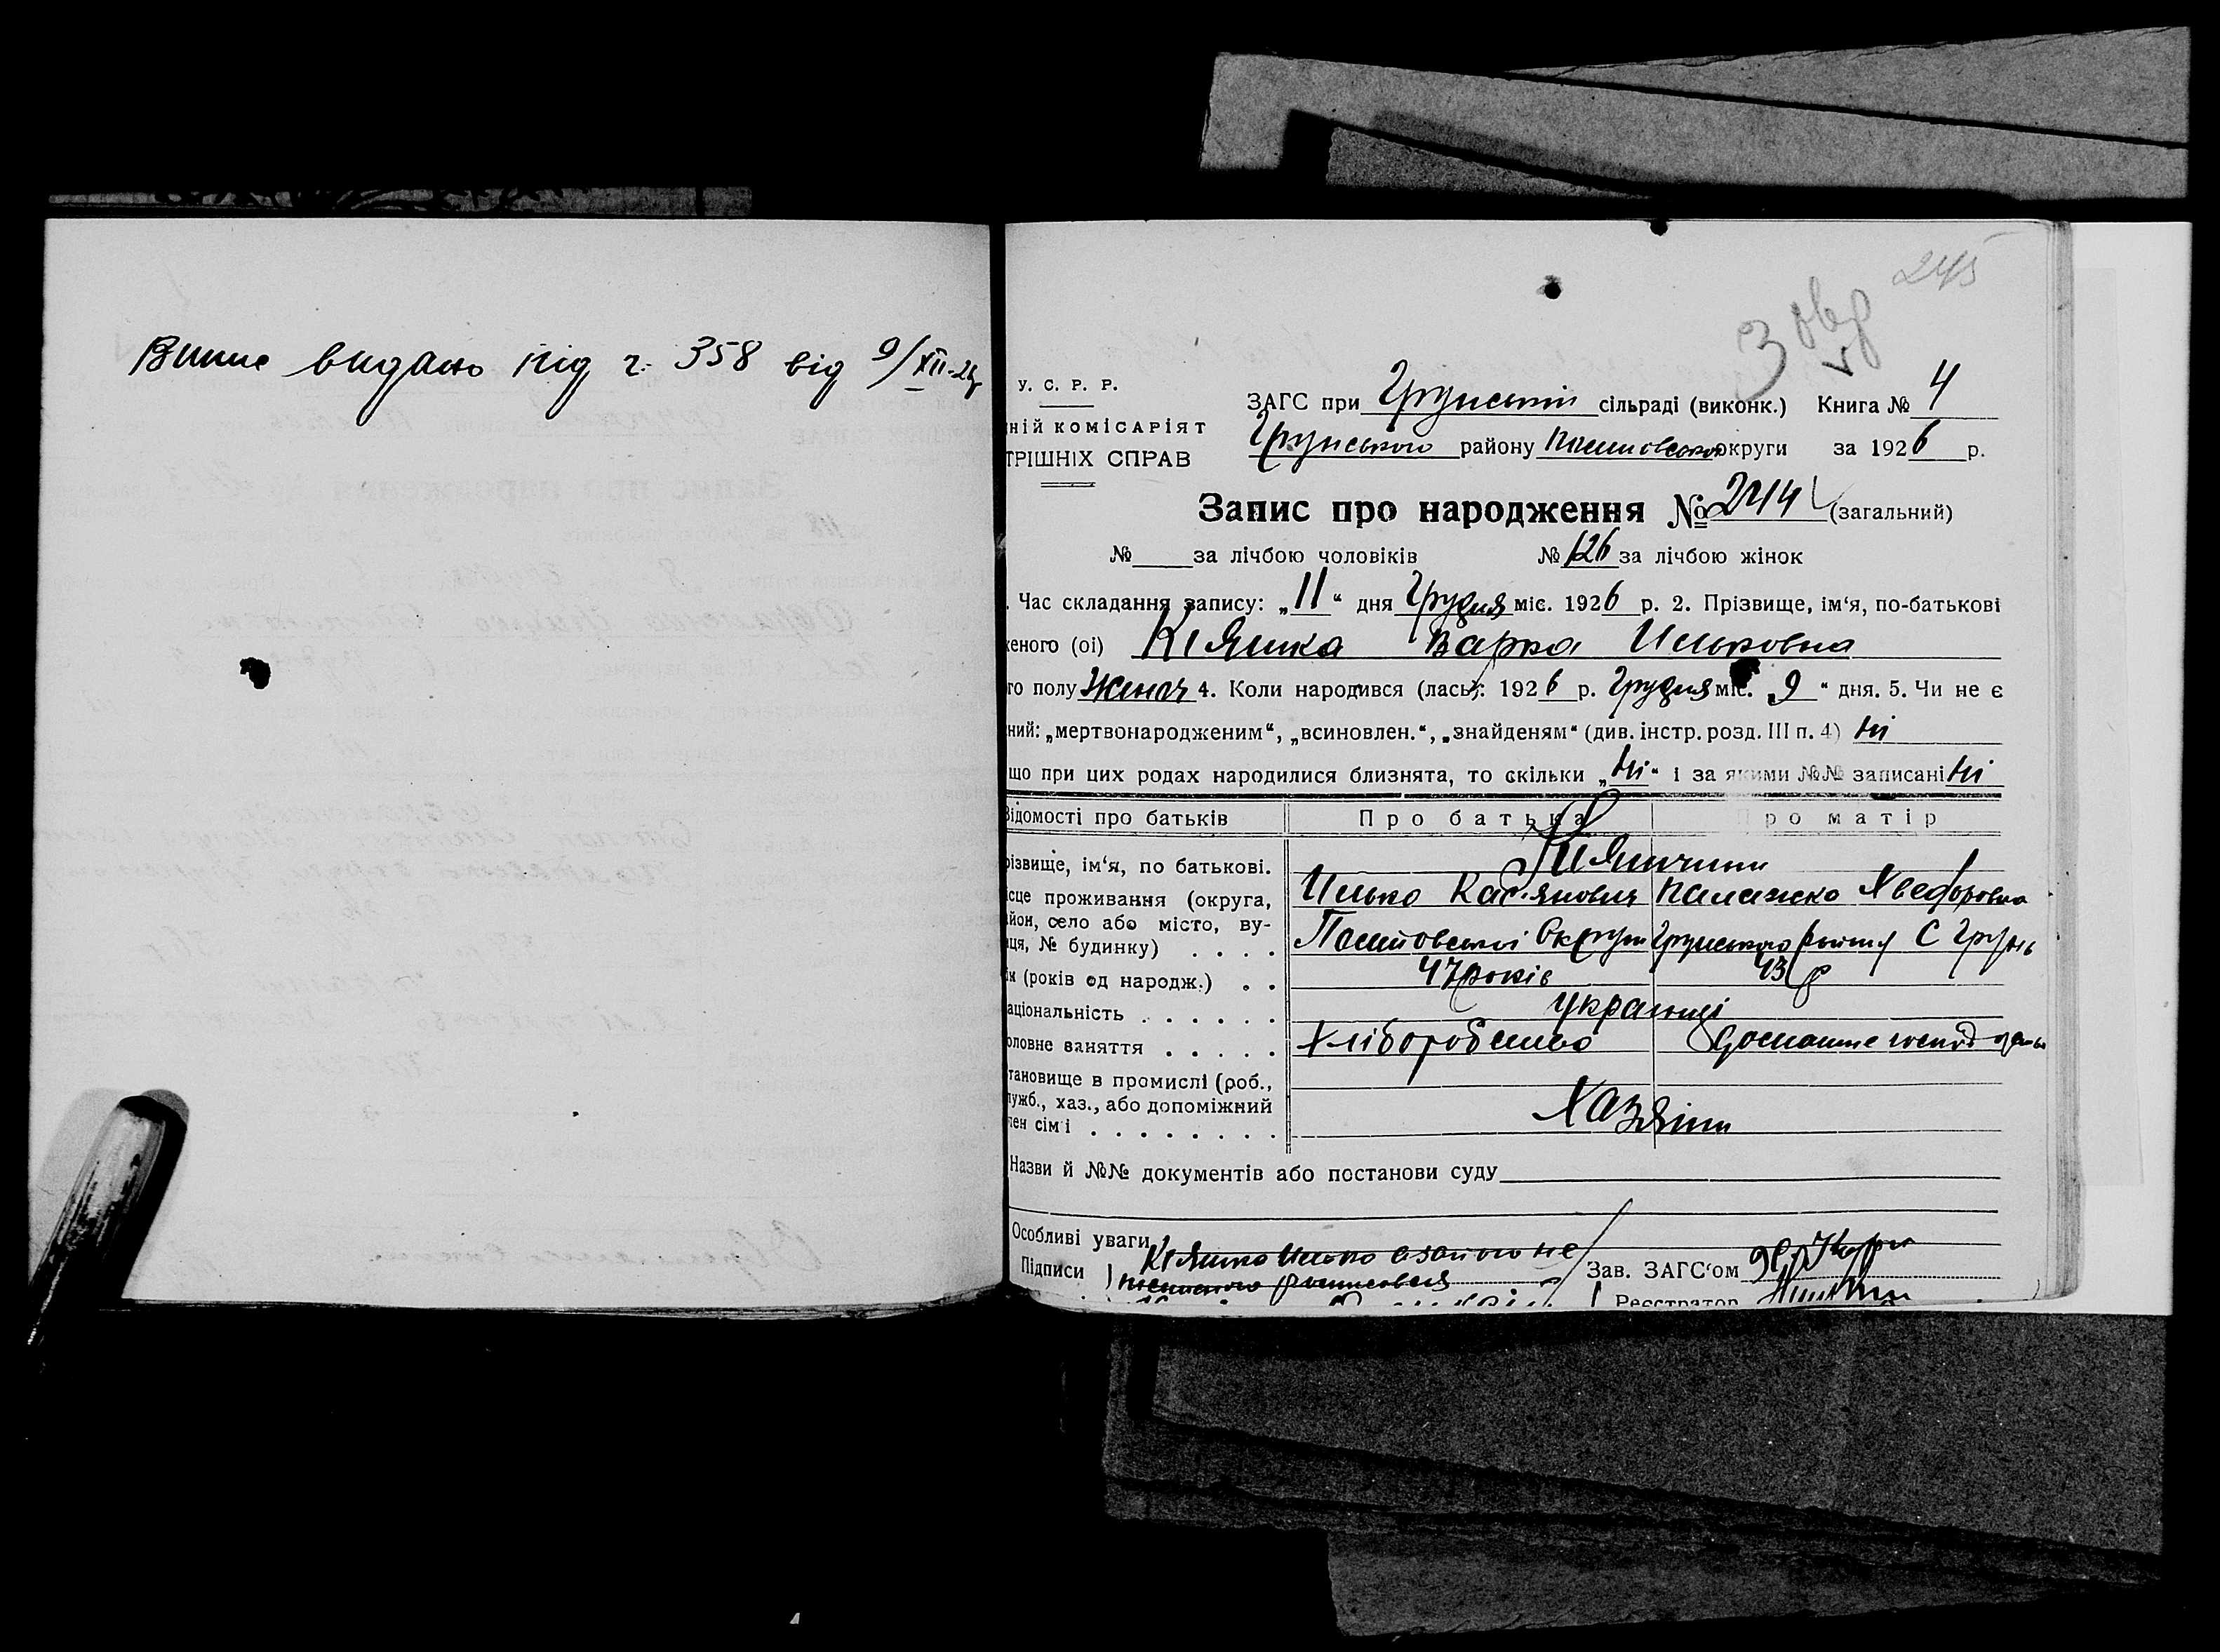 Випис видано під ч. 358 від 9/XII-26р
245
3
У. С. Р. Р.
ній КОМІСАРІЯТ
ТРІШНІХ СПРАВ
ЗАГС при Грунській сільраді (виконк.) Книга № 4
Грунського району округи за 1926 р.
Запис про народження № 244 (загальний)
№ за лічбою чоловіків № 126 за лічбою жінок
. Час складання запису: „11“ дня Грудня міс. 1926 р. 2. Прізвище, ім‘я, по-батькові
женого (ої) Кіяшка Варка Ильковна
го полу Жіноч 4. Коли народився (лась): 1926 р. Грудня міс. „9“ дня. 5. Чи не є
ний: „мертвонародженим“, „всиновлен.“, „знайденям“ (див. інстр. розд. III п. 4) ні
що при цих родах народилися близнята, то скільки „ні“ і за якими №№ записані ні
Відомості про батьків Про батька Про матір
різвище, ім‘я, по батькові.
Илько Кас‘янович Палажка Хведоровна
ісце проживання (округа,
йон, село або місто, ву-
ця, № будинку) . . . .
Округи Грунського району С Грунь
ік (років од народж.) . . 47 років 43 р
аціональність . . . . . . Українці
оловне заняття . . . . . Хліборобство Домашнє
тановище в промислі (роб.,
служб., хаз., або допоміжний
лен сім‘ї . . . . . . . .
Хазяіни
Назви й №№ документів або постанови суду
Особливі уваги
Підписи Кіяшко Илько а за його не
Зав. ЗАГС‘ом
Реєстратор